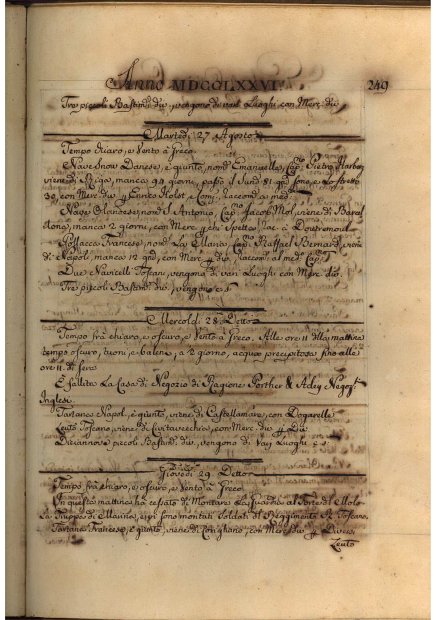 Anno MDCCLXXVI.
249
Tre piccoli Bastim.ti div. vengono di varj Luoghi con Merc. div.
Martedì 27 Agosto
Tempo chiaro, e Vento à Greco.
Nave Snow Danese, è giunto, nom.o Emanuelle, Cap.no Pietro
viene di Riga, manca 92 giorni, passò il Sund 31 gni sono, e lo stretto
30, con Merc. div. p Enrico Holst, e Comp.
Nave Olandese, nom.a S. Antonio, Cap.no Jacob Mol, viene di Barcel
lona, manca 2 giorni, con Merc. p chi Spetta, Rac. à Doutremoul
Pollacca Francese, nom.a La Maria, Cap.no Raffael Bernard, viene
di Napoli, manca 12 gni, con Merc. div. Raccom. al med.o Cap.no
Due Navicelli Toscani, vengono di varj Luoghi con Merc. div.
Tre piccoli Bastim.ti div. vengono e. s.
Mercoledì 28. Detto
Tempo frà chiaro, e oscuro, e Vento à Greco. Alle ore 11 della mattina
tempo oscuro, tuoni, e baleni, a 2 giorno, acqua precipitosa fino alle
ore 11 di sera
È fallita La Casa di Negozio di Ragione Porther & Adey Negoz.ti
Inglesi.
Tartana Napol. è giunto, viene di Castellamare, con Dogarelle
Leuto Toscano, viene di Civitavecchia, con Merc. div. p Div.
Diciannove piccoli Bastim.ti div. vengono di varj Luoghi e. s.
Giovedì 29 Detto
Tempo frà chiaro, e oscuro, e Vento à Greco.
In questa mattina hà cessato di Montare La Guardia al Forte del Molo
La Truppa di Marina, e vi sono montati Soldati del Reggimento R. Toscano.
Tartana Francese, è giunto, viene di Corigliano, con Merc. div. p Diversi
Leuto